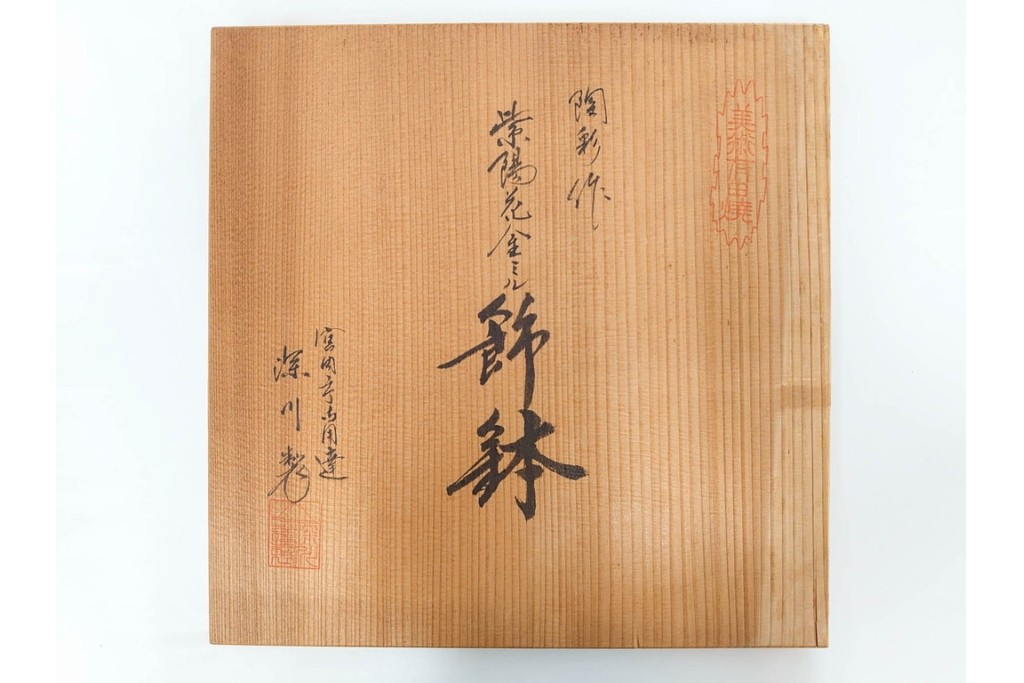 美術有田燒
陶彩作
紫陽花金ミル飾鉢
宮内庁御用達
深川製